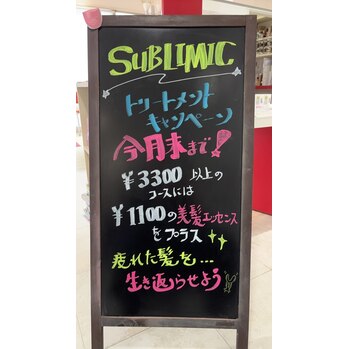 SUBLIMIC
トリートメント
キャンペーン
今月末まで!
¥3300 以上の
コースには
¥1100の美髪エッセンス
をプラス
疲れた髪を...
生き返らせよう